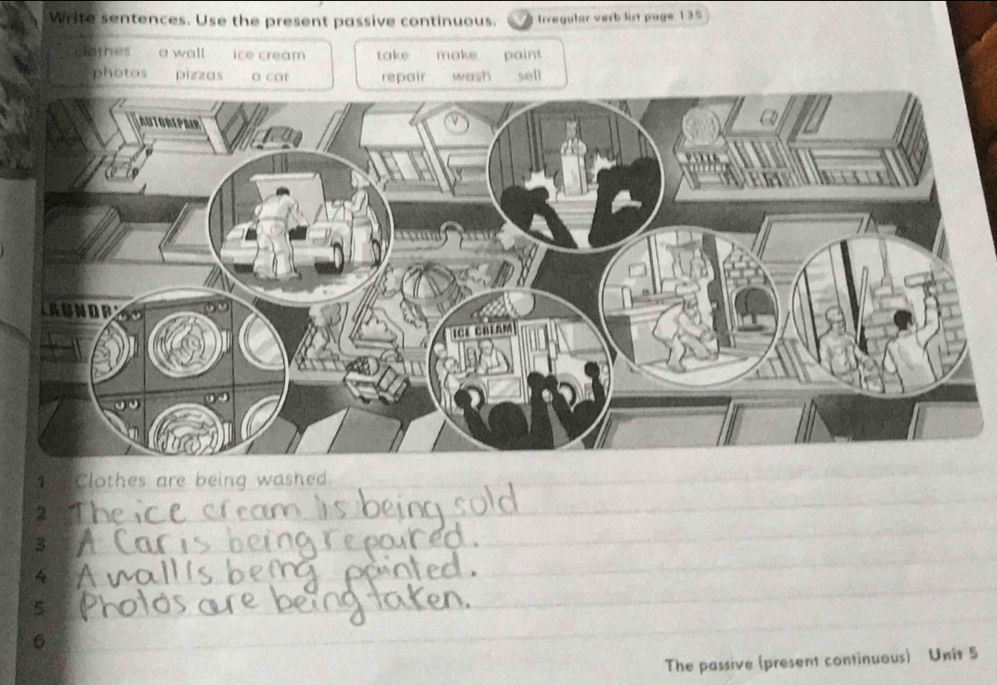 Write sentences. Use the present passive continuous. Irregular verb list page 135
clothes a wall ice cream
photos pizzas a car
take make paint
repair wash sell
AUTOREPAIR
PIZZA
LAUNDRY
ICE CREAM
1 Clothes are being washed.
2 The ice cream is being sold
3 A Car is being repaired.
4 A wall is being painted.
5 Photos are being taken.
6
The passive (present continuous) Unit 5